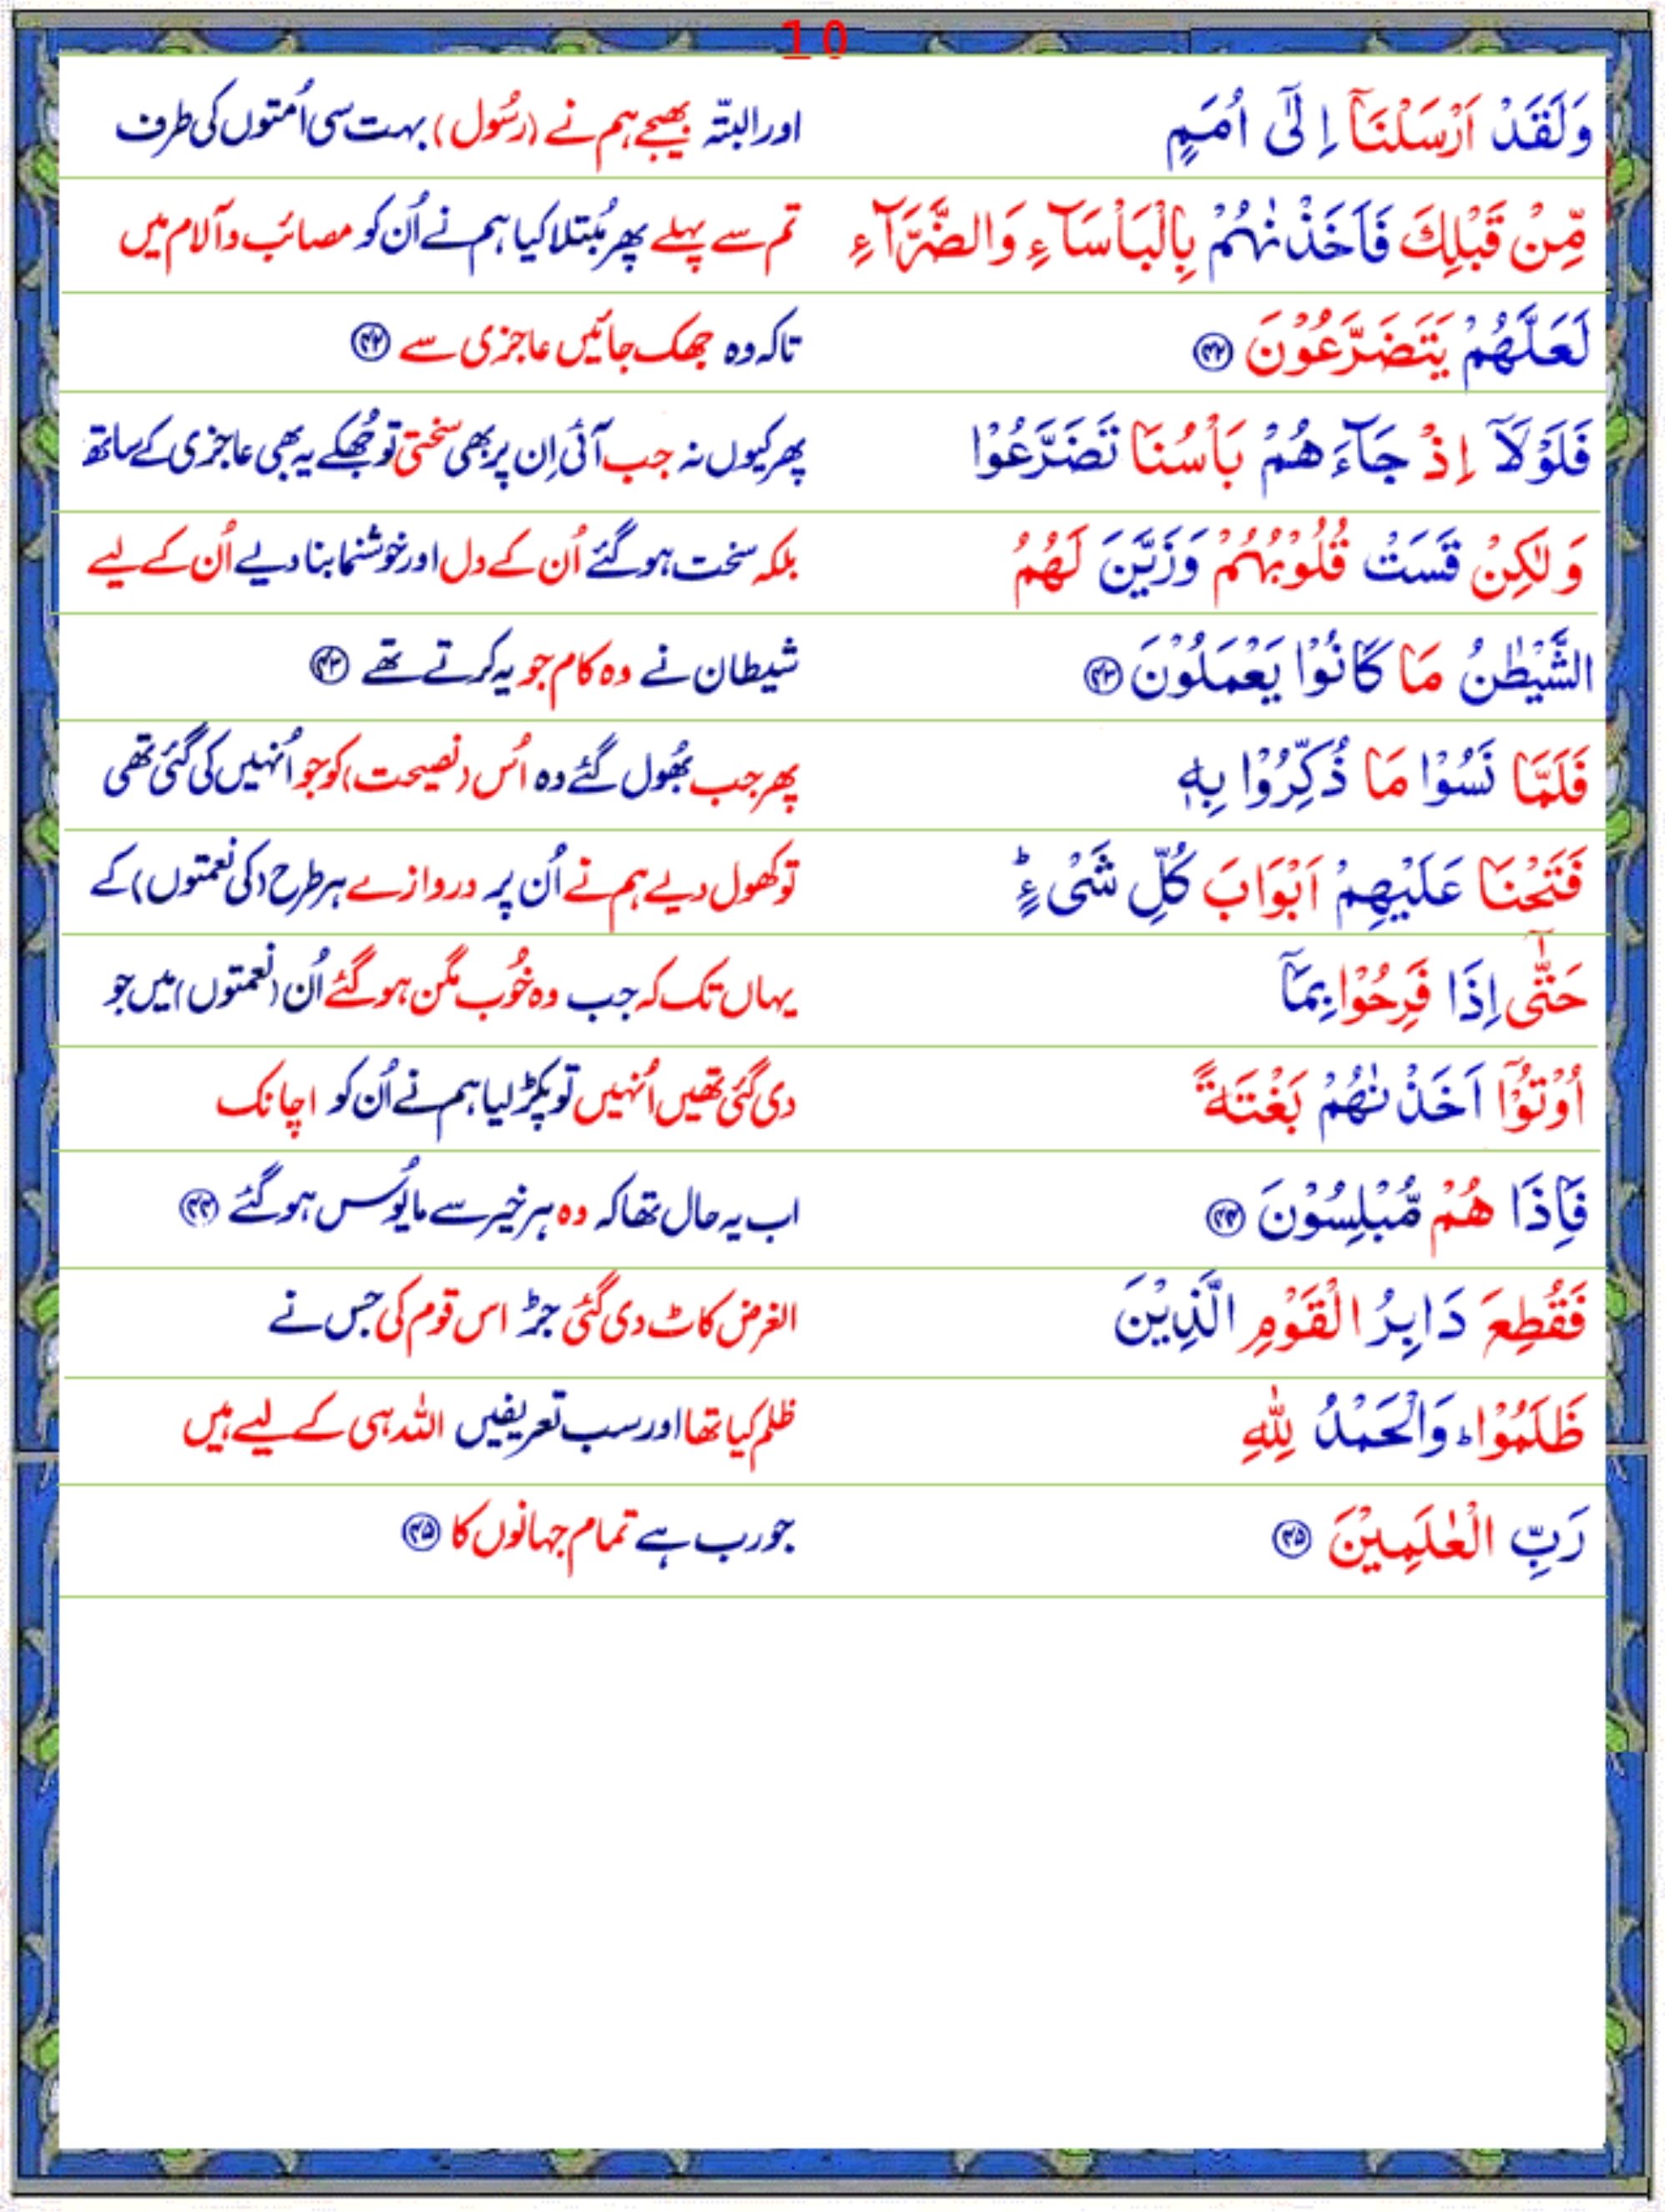 10
وَلَقَدْ اَرْسَلْنَاۤ اِلٰۤى اُمَمٍ اورالبتّہ بھیجے ہم نے (رسُول) بہت سی اُمتوں کی طرف
مِّنْ قَبْلِكَ فَاَخَذْنٰهُمْ بِالْبَاْسَآءِ وَالضَّرَّآءِ تم سے پہلے پھر مُبتلا کیا ہم نے اُن کو مصائب و آلام میں
لَعَلَّهُمْ يَتَضَرَّعُوْنَ ﴿۴۲﴾ تاکہ وہ جھک جائیں عاجزی سے ﴿۴۲﴾
فَلَوْلَاۤ اِذْ جَآءَهُمْ بَاْسُنَا تَضَرَّعُوْا پھر کیوں نہ جب آئی اِن پر بھی سختی تو جُھکے یہ بھی عاجزی کے ساتھ
وَلٰكِنْ قَسَتْ قُلُوْبُهُمْ وَزَيَّنَ لَهُمُ بلکہ سخت ہو گئے اُن کے دل اور خوشنما بنا دیے اُن کے لیے
الشَّيْطٰنُ مَا كَانُوْا يَعْمَلُوْنَ ﴿۴۳﴾ شیطان نے وہ کام جو یہ کرتے تھے ﴿۴۳﴾
فَلَمَّا نَسُوْا مَا ذُكِّرُوْا بِهٖ پھر جب بھُول گئے وہ اُس (نصیحت) کو جو اُنہیں کی گئی تھی
فَتَحْنَا عَلَيْهِمْ اَبْوَابَ كُلِّ شَىْءٍؕ تو کھول دیے ہم نے اُن پر دروازے ہر طرح (کی نعمتوں) کے
حَتّٰۤى اِذَا فَرِحُوْا بِمَاۤ یہاں تک کہ جب وہ خُوب مگن ہو گئے اُن (نعمتوں) میں جو
اُوْتُوْۤا اَخَذْنٰهُمْ بَغْتَةً دی گئی تھیں اُنہیں تو پکڑ لیا ہم نے اُن کو اچانک
فَاِذَا هُمْ مُّبْلِسُوْنَ ﴿۴۴﴾ اب یہ حال تھا کہ وہ ہر خیر سے مایُوس ہو گئے ﴿۴۴﴾
فَقُطِعَ دَابِرُ الْقَوْمِ الَّذِيْنَ الغرض کاٹ دی گئی جڑ اس قوم کی جس نے
ظَلَمُوْاؕ وَالْحَمْدُ لِلّٰهِ ظلم کیا تھا اور سب تعریفیں اللہ ہی کے لیے ہیں
رَبِّ الْعٰلَمِيْنَ ﴿۴۵﴾ جو رب ہے تمام جہانوں کا ﴿۴۵﴾